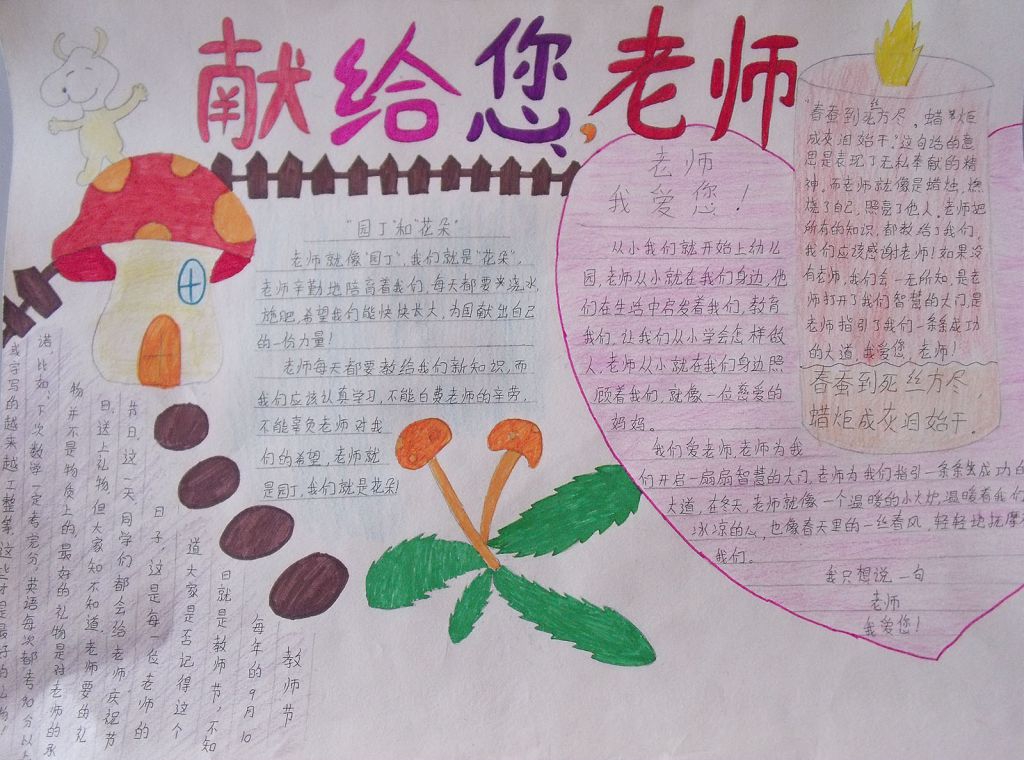 献给您,老师
"园丁"和"花朵"
老师就像"园丁",我们就是"花朵",
老师辛勤地陪育着我们,每天都要浇水,
施肥,希望我们能快快长大,为国献出自己
的一份力量!
老师每天都要教给我们新知识,而
我们应该认真学习,不能白费老师的辛劳,
不能辜负老师对我
们的希望,老师就
是园丁,我们就是花朵!
老师
我爱您!
从小我们就开始上幼儿
园,老师从小就在我们身边,他
们在生活中启发着我们,教育
我们,让我们从小学会怎样做
人,老师从小就在我们身边照
顾着我们,就像一位慈爱的
妈妈。
我们爱老师,老师为我
们开启一扇扇智慧的大门,老师为我们指引一条条成功的
大道,在冬天,老师就像一个温暖的小火炉,温暖着我们
冰凉的心,也像春天里的一丝春风,轻轻地抚摩
我们。
我只想说一句
老师
我爱您!
"春蚕到死丝方尽,蜡炬
成灰泪始干."这句话的意
思是表现了无私奉献的精
神,而老师就像是蜡烛,燃
烧了自己,照亮了他人,老师把
所有的知识,都教给了我们,
我们应该感谢老师!如果没
有老师,我们会一无所知,是老
师打开了我们智慧的大门是
老师指引了我们一条条成功
的大道,我爱您,老师!
春蚕到死丝方尽
蜡炬成灰泪始干.
教师节
每年的9月10
日就是教师节,不知
道大家是否记得这个
日子,这是每一位老师的
节日,这一天同学们都会给老师庆祝节
日,送上礼物,但大家知不知道,老师要的礼
物并不是物质上的,最好的礼物是对老师的承
诺,比如:下次数学一定考完分,英语每次都考90分以
或字写的越来越工整等,这些才是最好的礼物!